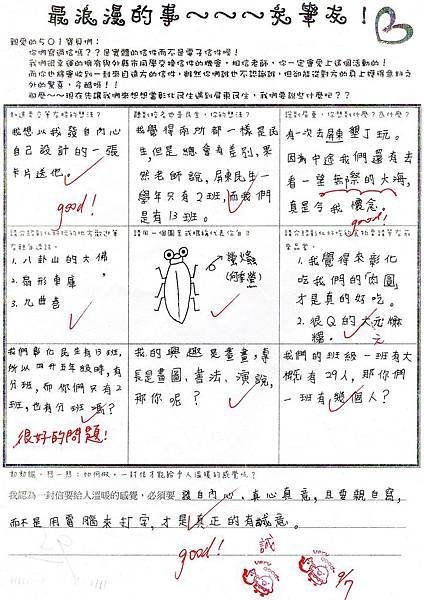 最浪漫的事～～～交筆友！
親愛的501寶貝們：
你們寫過信嗎？？是實體的信件而不是電子信件喔！
我們很幸運的擁有與外縣市同學交換信件的機會，相信老師，你一定會愛上這個活動的！
而你也將會收到一封來自遠方的信件，雖然你們誰也不認識誰，但卻能從對方的身上獲得意料之
外的驚喜，今酷吧！！
那麼～～現在先讓我們來想想當彰化民生遇到屏東民生，我們要說些什麼呢？？
我想以我發自內心
自己設計的一張
卡片送他。
good!
我覺得兩所都一樣是民
生，但是總會有差別，果
然老師說，屏東民生一
學年只有2班，而我們
是有13班。
有一次去屏東墾丁玩。
因為中途我們還有去
看一望無際的大海，
真是令我懷念。
good!
1. 八卦山的大佛
2. 扇形車庫
3. 九曲巷
請用一個圖案或橋樑代表你自己
螢火蟲
1. 我覺得來彰化
吃我們的「肉圓」
才是真的好吃。
2. 很Q的大元麻
糬。
元
我們彰化民生有13班，
所以四升五年級時，有
分班，而你們只有2
班，也有分班嗎？
很好的問題！
我的興趣是畫畫，專
長是畫圖、書法、演說，
那你呢？
我們的班級一班有大
概有29人，那你們
一班有幾個人？
動動腦、想一想：如何做，一封信才能給予人溫暖的感覺呢？
我認為一封信要給人溫暖的感覺，必須要 發自內心、真心真意，且要親自寫，
而不是用電腦來打字，才是真正的有誠意。
good!
誠
9/7